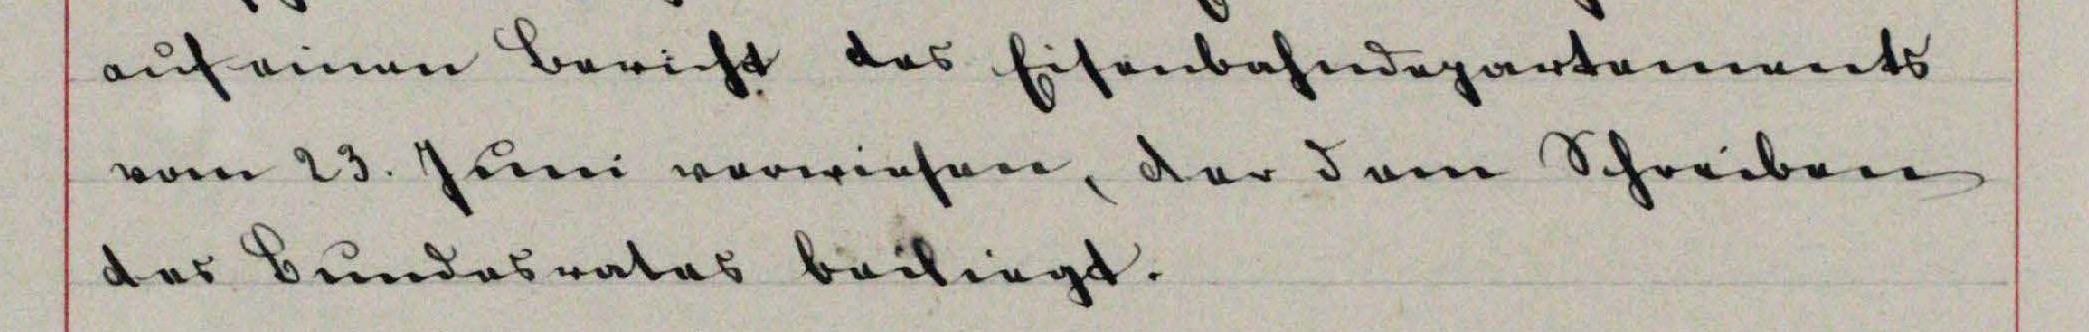 auf einen Bericht des Eisenbahndepartements
vom 23. Juni verwiesen, der dem Schreiben
des Bundesrates beiliegt.